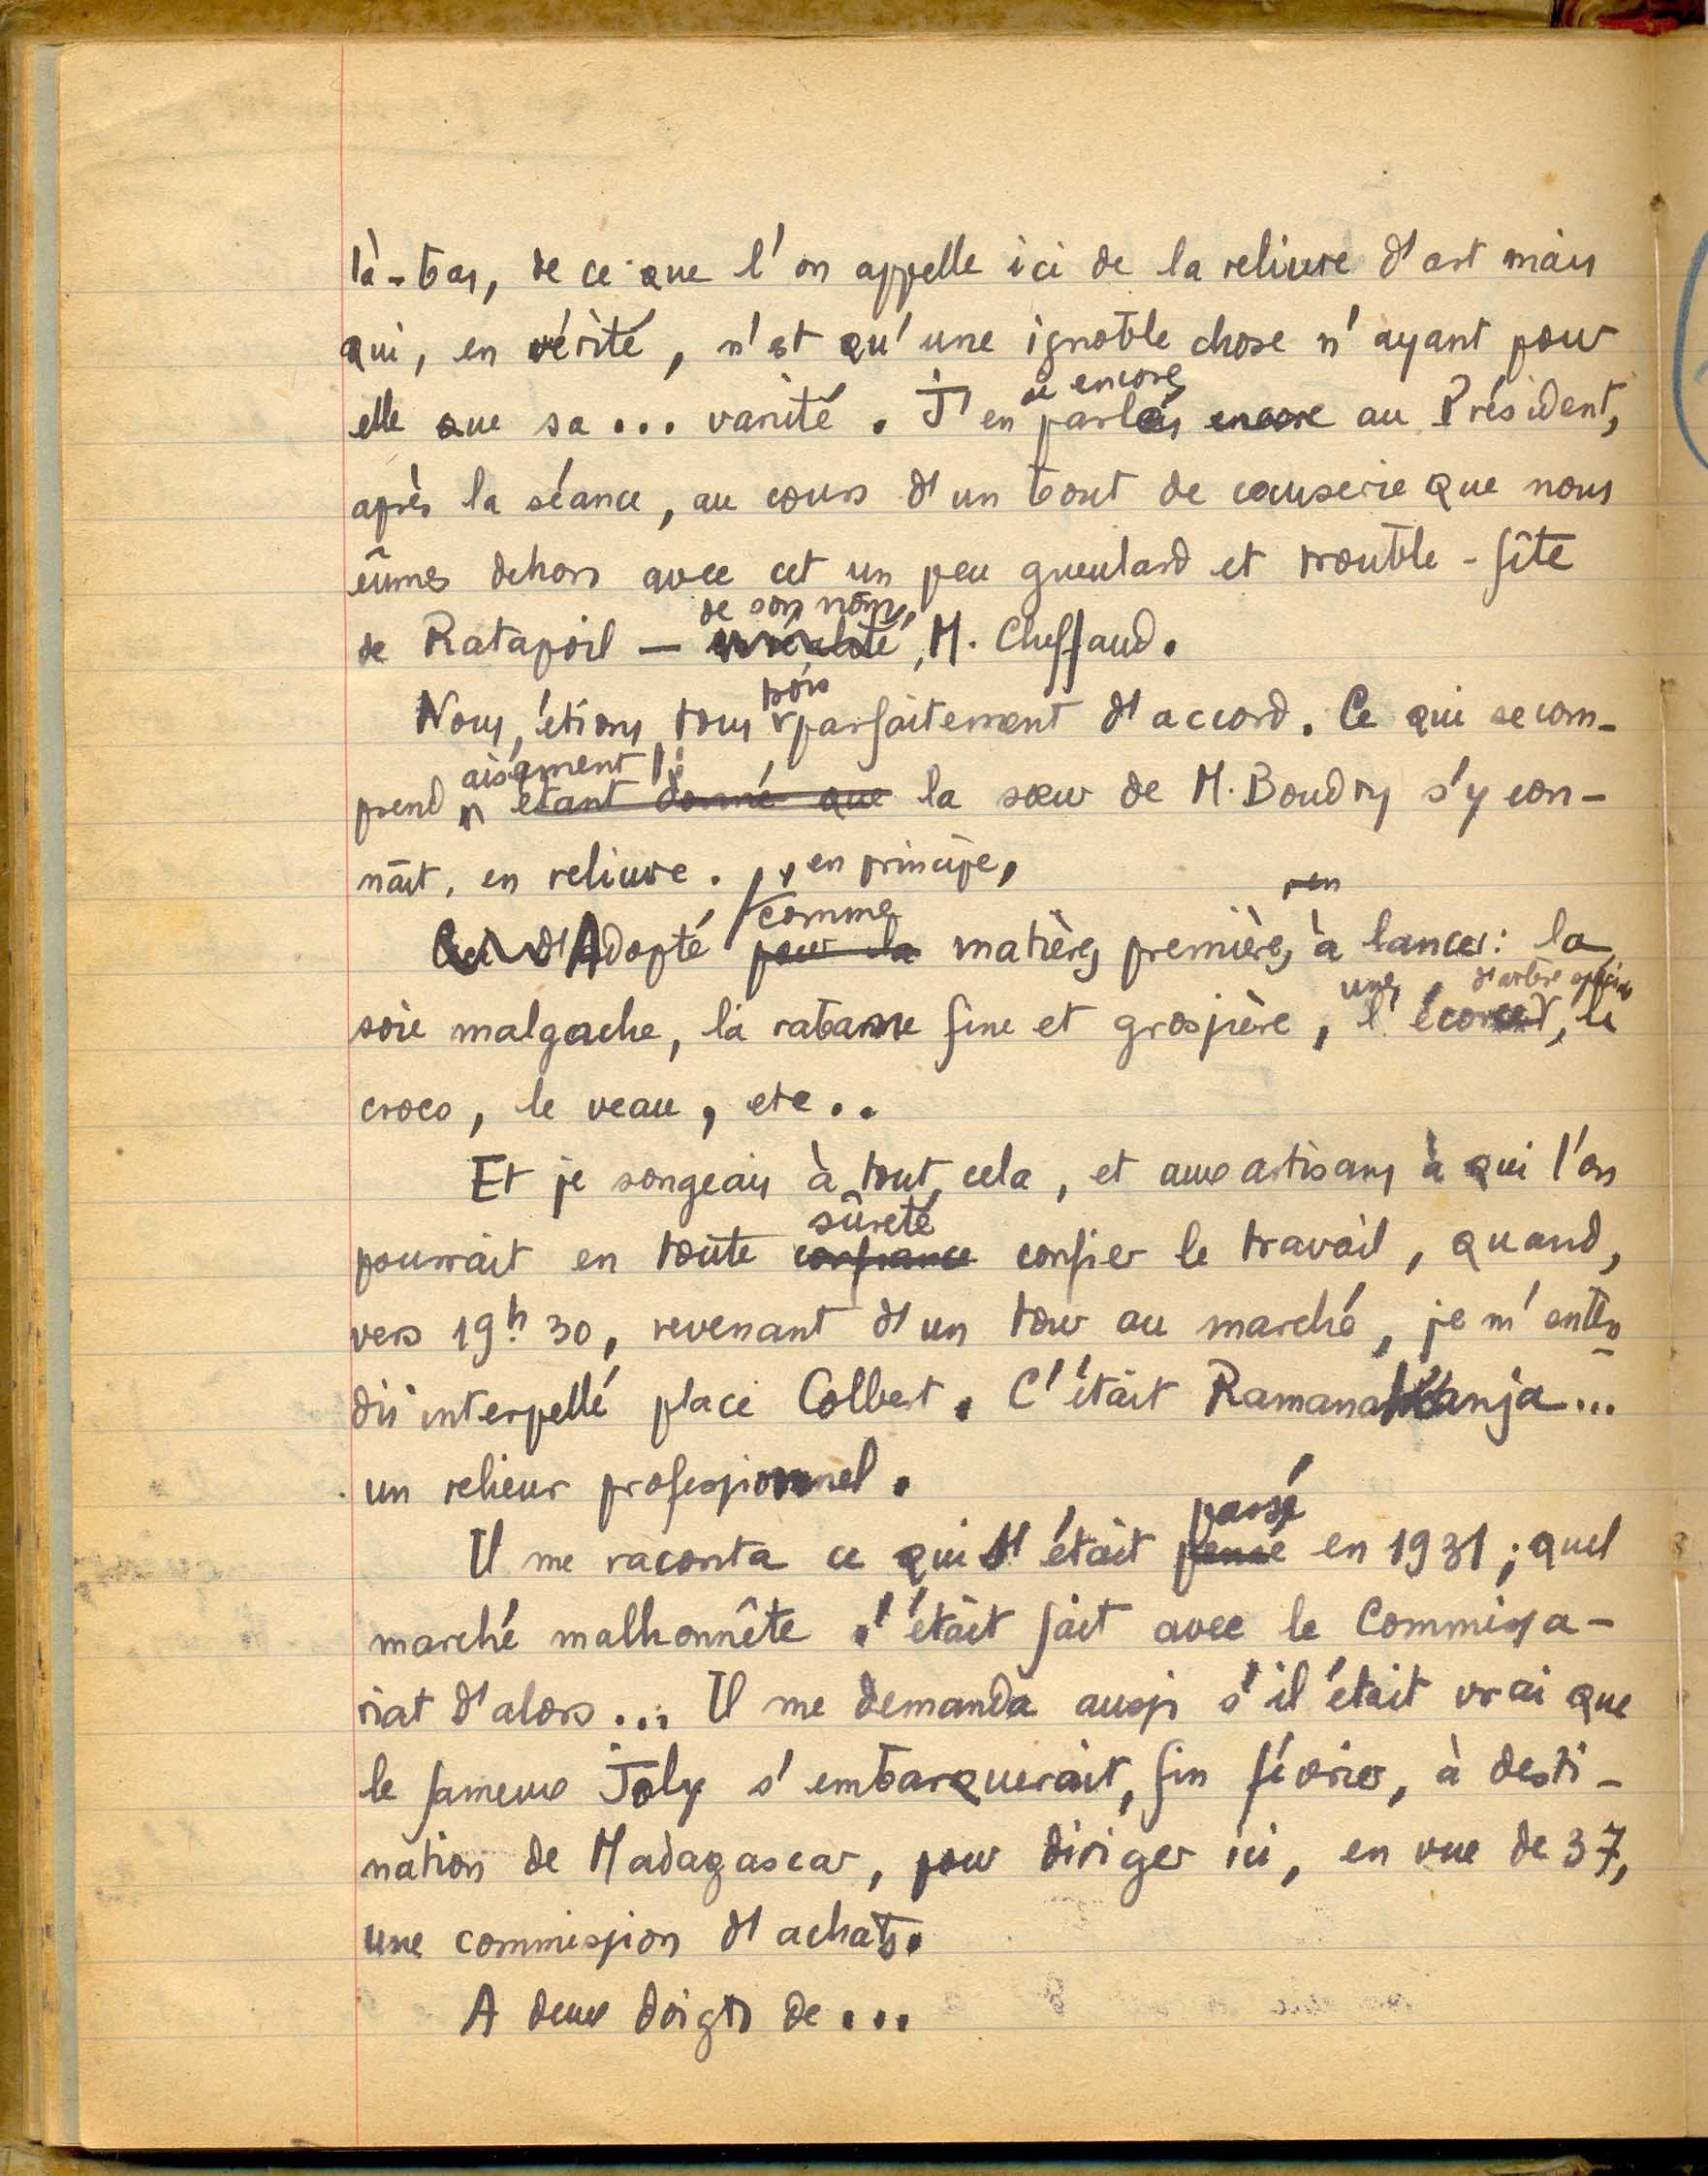 là-bas, de ce que l'on appelle ici de la reliure d'art mais
qui, en vérité, n'est qu'une ignoble chose n'ayant pour
elle que sa... vanité. J'en ai encore parlé encore au Président,
après la séance, au cours d'un bout de causerie que nous
eûmes dehors avec cet un peu gueulard et trouble-fête
de son nom,
de Ratapoil — en réalité, M. Cheffaud.
trois
Nous étions tous parfaitement d'accord. Ce qui se com-
aisément :
prend étant donné que la sœur de M. Boudry s'y con-
naît, en reliure.
, en principe,
comme en
Adopté pour la matières premières à lancer : la
une d'arbre spécial
soie malgache, la rabane fine et grossière, l'écorce, le
croco, le veau, etc..
Et je songeais à tout cela, et aux artisans à qui l'on
sûreté
pourrait en toute confiance confier le travail, quand,
vers 19h 30, revenant d'un tour au marché, je m'enten-
dis interpellé place Colbert. C'était ...
un relieur professionnel.
passé
Il me raconta ce qui s'était pensé en 1931 ; quel
marché malhonnête s'était fait avec le Commissa-
riat d'alors... Il me demanda aussi s'il était vrai que
le fameux Joly s'embarquerait, fin février, à desti-
nation de Madagascar, pour diriger ici, en vue de 37,
une commission d'achats.
A deux doigts de...